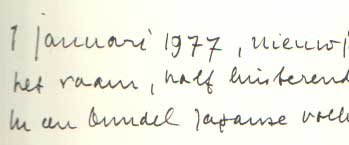 1 januari 1977, nieuwj
het raam, half luisterend
In een bundel Japanse volk